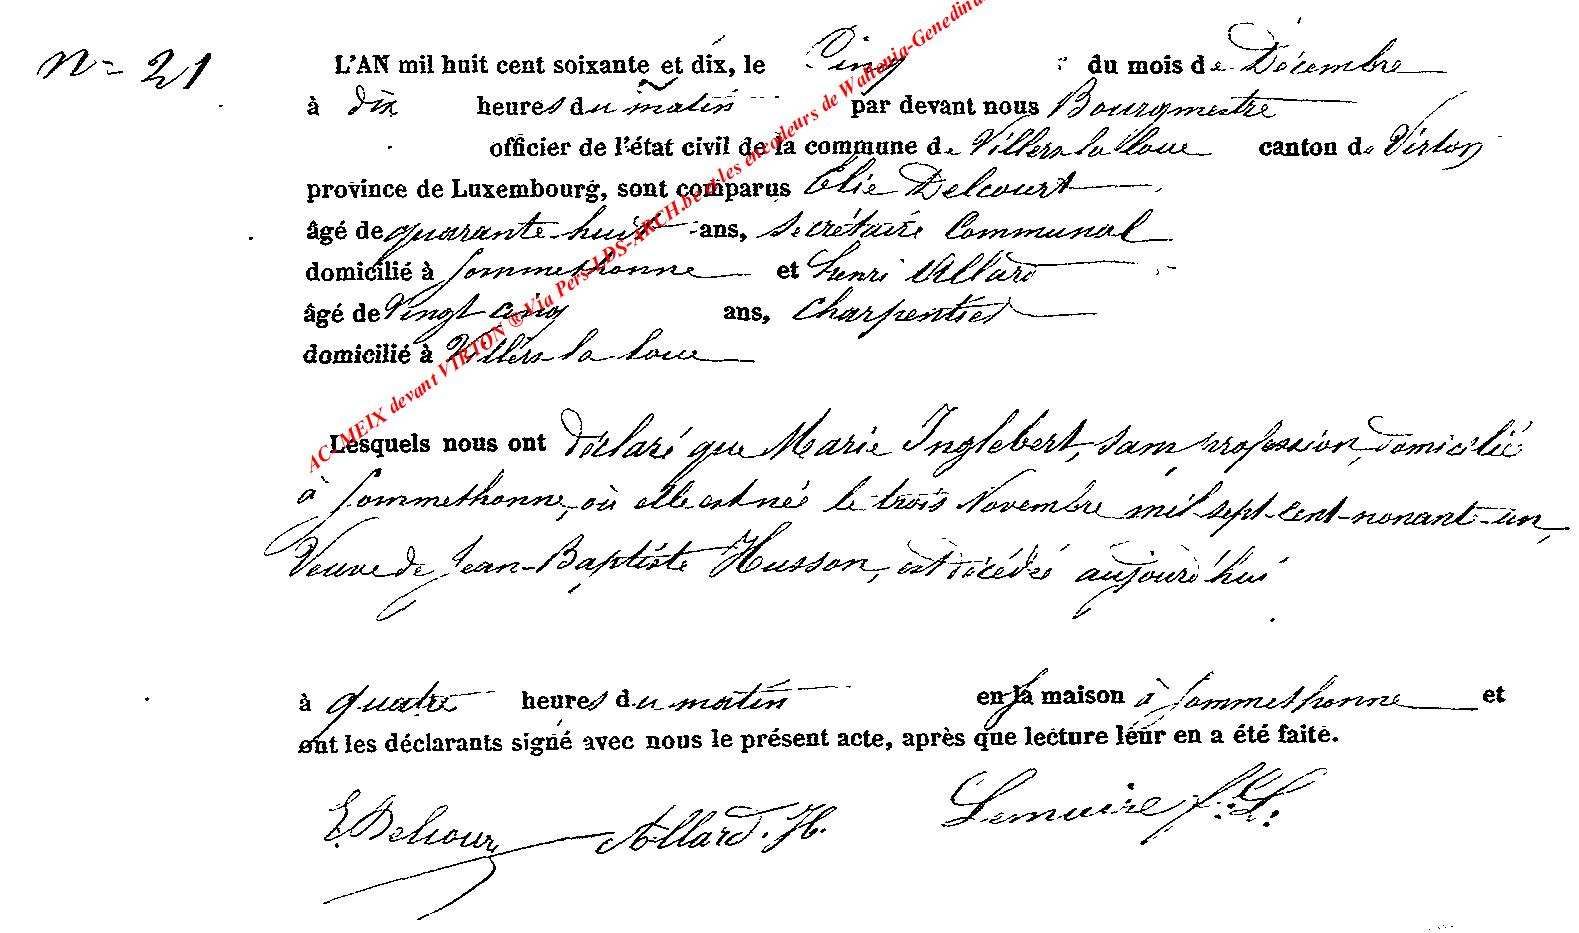 n= 21
L'AN mil huit cent soixante et dix, le Cinq du mois de Décembre
à dix heures du matin par devant nous Bourgmestre
officier de l'état civil de la commune de Villers la loue canton de Virton
province de Luxembourg, sont comparus Elie Delcourt
âgé de quarante-huit ans, secrétaire Communal
domicilié à Sommethonne et Henri Allard
âgé de Vingt cinq ans, Charpentier
domicilié à Villers la loue
Lesquels nous ont déclaré que Marie Inglebert, sans profession, domicilié
à Sommethonne, où elle est née le trois Novembre mil-sept-cent-nonant-un,
Veuve de Jean-Baptiste Husson, est décédée aujourd'hui
à quatre heures du matin en la maison à Sommethonne et
ont les déclarants signé avec nous le présent acte, après que lecture leur en a été faite.
E. Delcour Allard. H. Lemaire f. L.
AC MEIX devant VIRTON ® Via Pers-LDS-ARCH.be et les encodeurs de Wallonia-Genedinate